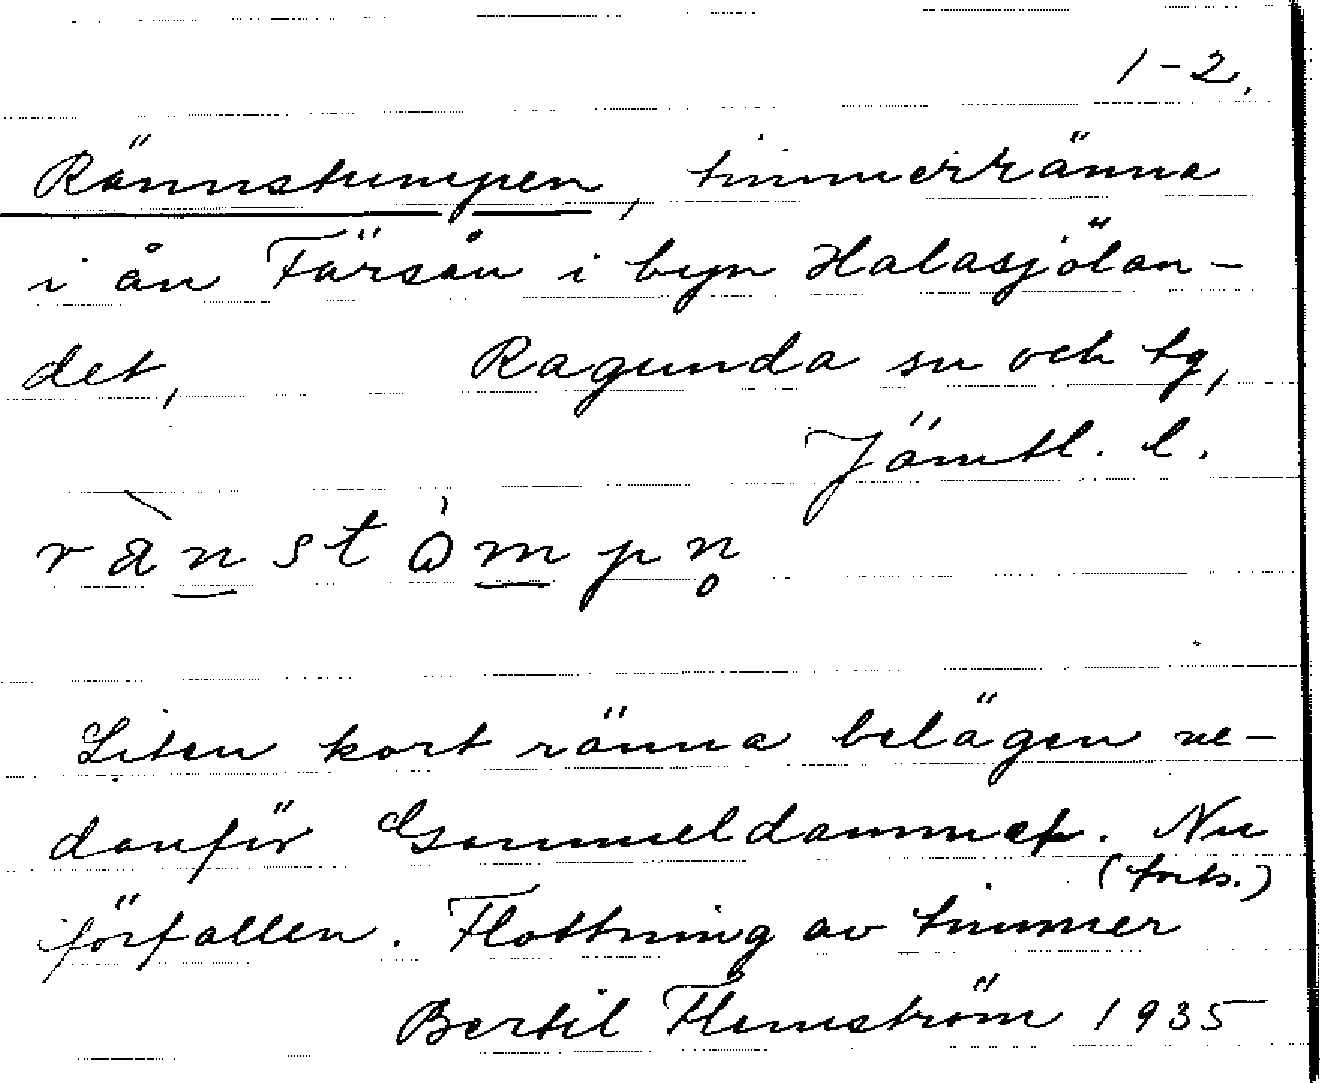 1-2.
Rännstumpen, timmerränna
i ån Färsån i byn Halasjölan-
det, Ragunda sn och tg,
Jämtl. l.
rànstò̱mpn̥
Liten kort ränna belägen ne-
danför Gammeldammen. Nu
(forts.)
förfallen. Flottning av timmer
Bertil Flemström 1935